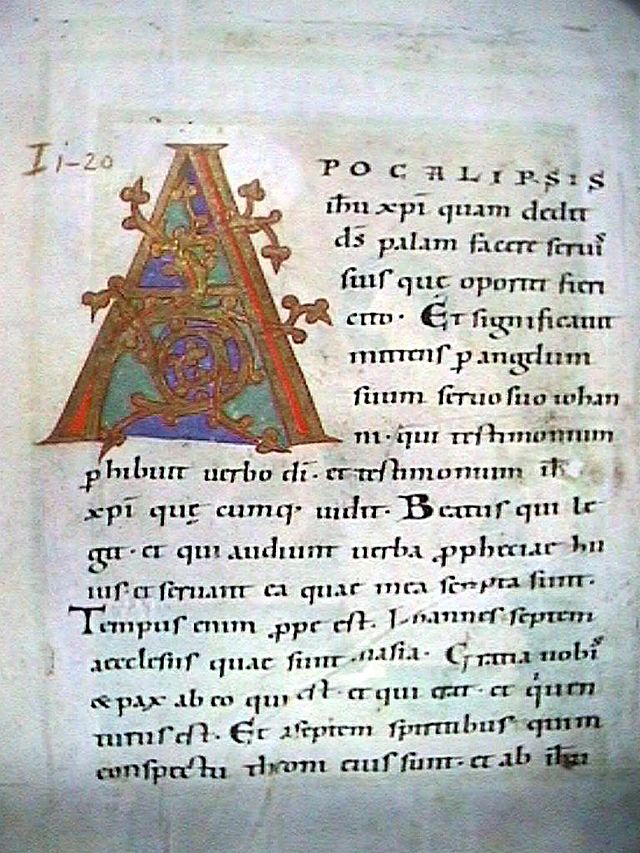 I i-20
APOCALIPSIS
ih̄u xp̄i quam dedit
d̄s palam facere seruis
suis que oportet fieri
cito· Et significauit
mittens ꝑ angelum
suum seruo suo iohan
ni· qui testimonium
ꝑhibuit uerbo dī· et testimonium ih̄
xp̄i quę cumq· uidit· Beatus qui le
git· et qui audiunt uerba ꝓphetiae hu
ius et seruant ea quae in ea scripta sunt·
Tempus enim ꝓpe est. Iohannes septem
aecclesiis quae sunt inasia· Gratia uobis
& pax ab eo qui est· et qui erat· et qui uen
turus est. Et aseptem spiritibus qui in
conspectu throni eius sunt· et ab ih̄u